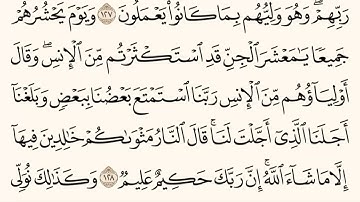 رَبِّهِمْ ۖ وَهُوَ وَلِيُّهُم بِمَا كَانُوا۟ يَعْمَلُونَ ١٢٧ وَيَوْمَ يَحْشُرُهُمْ
جَمِيعًا يَـٰمَعْشَرَ ٱلْجِنِّ قَدِ ٱسْتَكْثَرْتُم مِّنَ ٱلْإِنسِ ۖ وَقَالَ
أَوْلِيَآؤُهُم مِّنَ ٱلْإِنسِ رَبَّنَا ٱسْتَمْتَعَ بَعْضُنَا بِبَعْضٍ وَبَلَغْنَآ
أَجَلَنَا ٱلَّذِىٓ أَجَّلْتَ لَنَا ۚ قَالَ ٱلنَّارُ مَثْوَىٰكُمْ خَـٰلِدِينَ فِيهَآ
إِلَّا مَا شَآءَ ٱللَّهُ ۗ إِنَّ رَبَّكَ حَكِيمٌ عَلِيمٌ ١٢٨ وَكَذَٰلِكَ نُوَلِّى